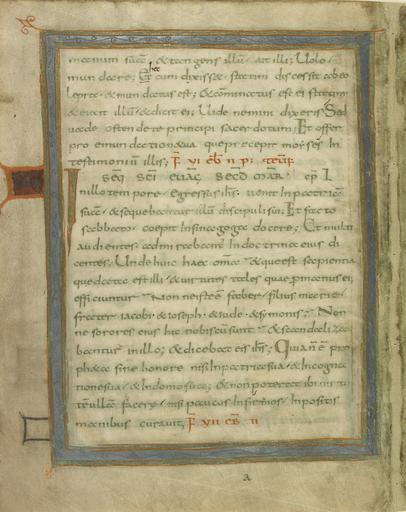 manum suam · & tangens illū · ait illi; Volo ·
mundare; Et cum dixisset · statim discessit ab eo
lepra · & mundatus est; & comminatus est ei statim ·
& eiecit illū · & dicit ei; Uide nemini dixeris; Sed
uade ostende te principi sacerdotum; Et offer
pro emundatione tua que precepit moyses In
testimonium illis;
seq̄ scī euāg secd mar̄
In illo tempore · Egressus ihs · uenit In patriā
suā · & sequebantur illū discipuli sui; Et facto
sabbato · coepit In sinagoga docere; Et multi
audientes · admirabantur In doctrina eius di
centes; Unde huic haec om̄a · & que est sapientia
que data est illi · & uirtutes tales quae p manus ei
efficiuntur · Nonne iste ē faber · filius mariae ·
frater iacobi & ioseph · & iude · & simonis; Non
ne sorores eius hic nobiscū sunt · & scandaliza
bantur in illo; & dicebat eis ihs; Quia nē pro
pheta sine honore nisi In patria sua · & In cogna
tione sua · & In domo sua; & non poterat ibi uir tu
tē ullā facere · nisi paucos Infirmos · Inpositis
manibus curauit;